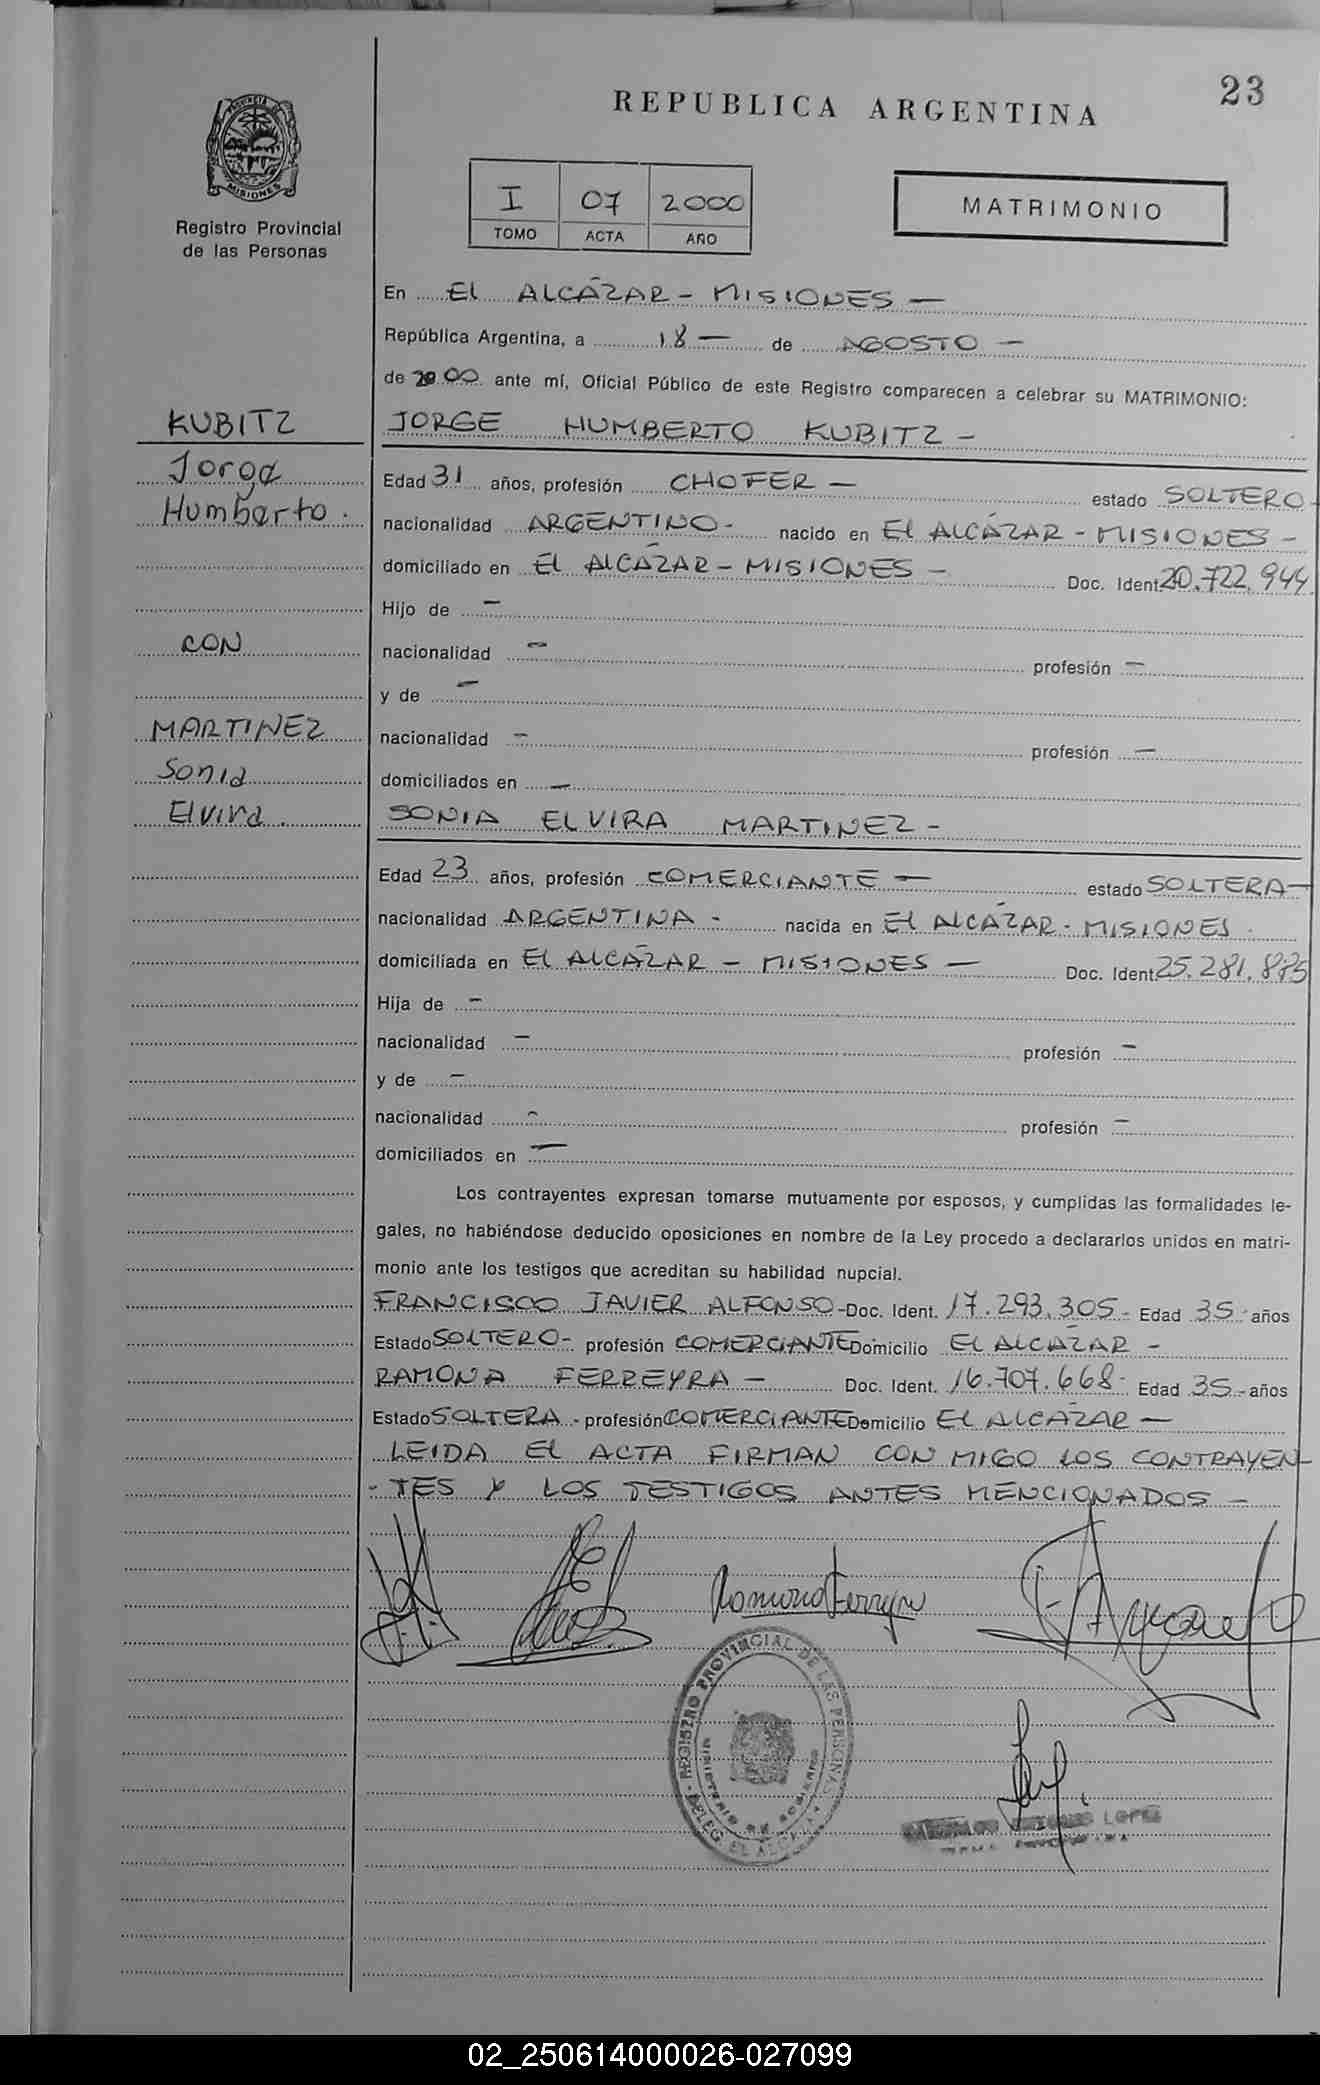 23
REPUBLICA ARGENTINA
PROVINCIA DE
MISIONES
Registro Provincial
de las Personas
I 07 2000
TOMO ACTA AÑO
MATRIMONIO
En El ALCÁZAR - MISIONES -
República Argentina, a 18 - de AGOSTO -
de 2000 ante mí, Oficial Público de este Registro comparecen a celebrar su MATRIMONIO:
KUBITZ
Jorge
Humberto.
CON
MARTINEZ
Sonia
Elvira.
JORGE HUMBERTO KUBITZ -
Edad 31 años, profesión CHOFER - estado SOLTERO-
nacionalidad ARGENTINO- nacido en El ALCÁZAR - MISIONES -
domiciliado en El ALCÁZAR - MISIONES - Doc. Ident. 20.722.944.
Hijo de -
nacionalidad - profesión -
y de -
nacionalidad - profesión -
domiciliados en -
SONIA ELVIRA MARTINEZ -
Edad 23 años, profesión COMERCIANTE - estado SOLTERA-
nacionalidad ARGENTINA - nacida en El ALCÁZAR - MISIONES.
domiciliada en El ALCÁZAR - MISIONES - Doc. Ident. 25.281.
Hija de -
nacionalidad - profesión -
y de -
nacionalidad - profesión -
domiciliados en -
Los contrayentes expresan tomarse mutuamente por esposos, y cumplidas las formalidades le-
gales, no habiéndose deducido oposiciones en nombre de la Ley procedo a declararlos unidos en matri-
monio ante los testigos que acreditan su habilidad nupcial.
FRANCISCO JAVIER ALFONSO - Doc. Ident. 17.293.305 - Edad 35 - años
Estado SOLTERO - profesión COMERCIANTE Domicilio El ALCÁZAR -
RAMONA FERREYRA - Doc. Ident. 16.707.668 - Edad 35 - años
Estado SOLTERA - profesión COMERCIANTE Domicilio El ALCÁZAR -
LEIDA El ACTA FIRMAN CON MIGO LOS CONTRAYEN-
- TES Y LOS TESTIGOS ANTES MENCIONADOS -
Ramona Ferreyra
REGISTRO PROVINCIAL DE LAS PERSONAS
MINISTERIO DE GOBIERNO
DELEG. EL ALCAZAR
LOPEZ
02_250614000026-027099